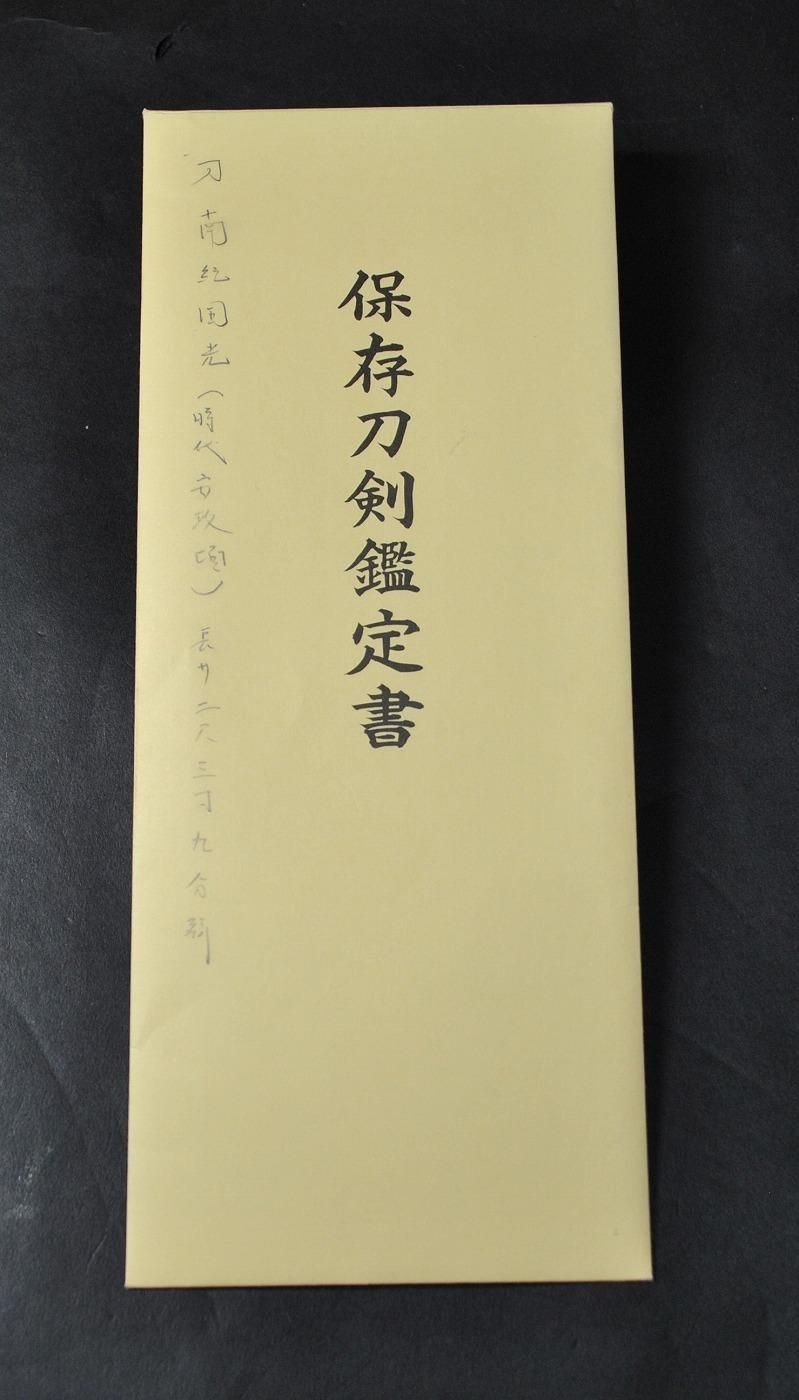 保存刀剣鑑定書
刀 南紀国光（時代文政頃）長サ二尺三寸九分